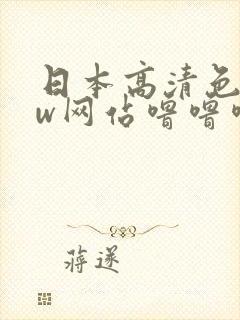 日本高清色
w网佔噜噜噜
蒋遂